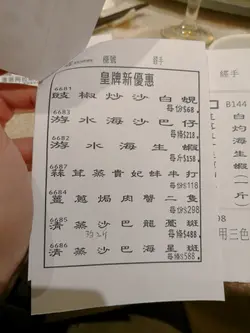 檯號 經手
皇牌新優惠
6681
豉椒炒沙白蜆
每份$68
6683
游水海沙巴仔
每條$218
6682
游水海生蝦
每斤$150
6687
蒜茸蒸貴妃蚌半打
每份$118
6684
薑蔥焗肉蟹二隻
每份$298
6685
清蒸沙巴龍躉斑
每條$488
6686
清蒸沙巴海星斑
每條$588
經手
8144
白灼海生蝦(一斤)
用三色